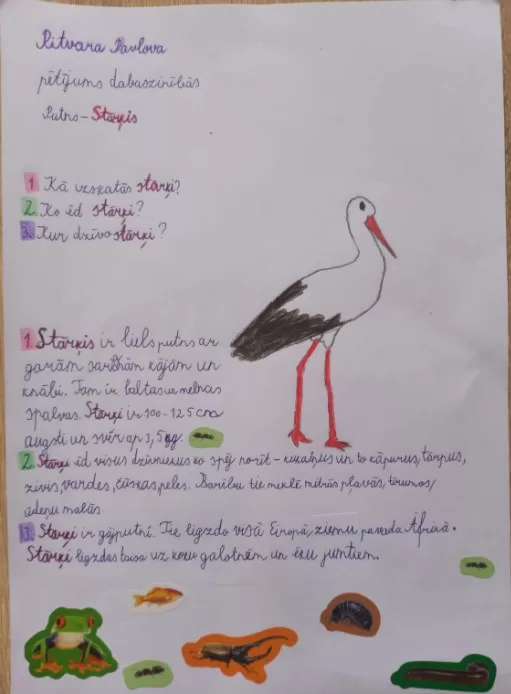 Ritvara Pavlova
pētījums dabaszinībās
Putns - Stārķis
1. Kā izskatās stārķi?
2. Ko ēd stārķi?
3. Kur dzīvo stārķi?
1. Stārķis ir liels putns ar
garām sarkanām kājām un
knābi. Tam ir baltas un melnas
spalvas. Stārķi ir 100-125 cm
augsti un sver ap 3,5 kg.
2. Stārķi ēd visus dzīvniekus ko spēj norīt - kukaiņus un to kāpurus, tārpus,
zivis, vardes, čūskas, peles. Barību tie meklē mitrās pļavās, tīrumos,
ūdeņu malās
3. Stārķi ir gājputni. Tie ligzdo visā Eiropā, ziemu pavada Āfrikā.
Stārķi ligzdas taisa uz koku galotnēm un ēku jumtiem.